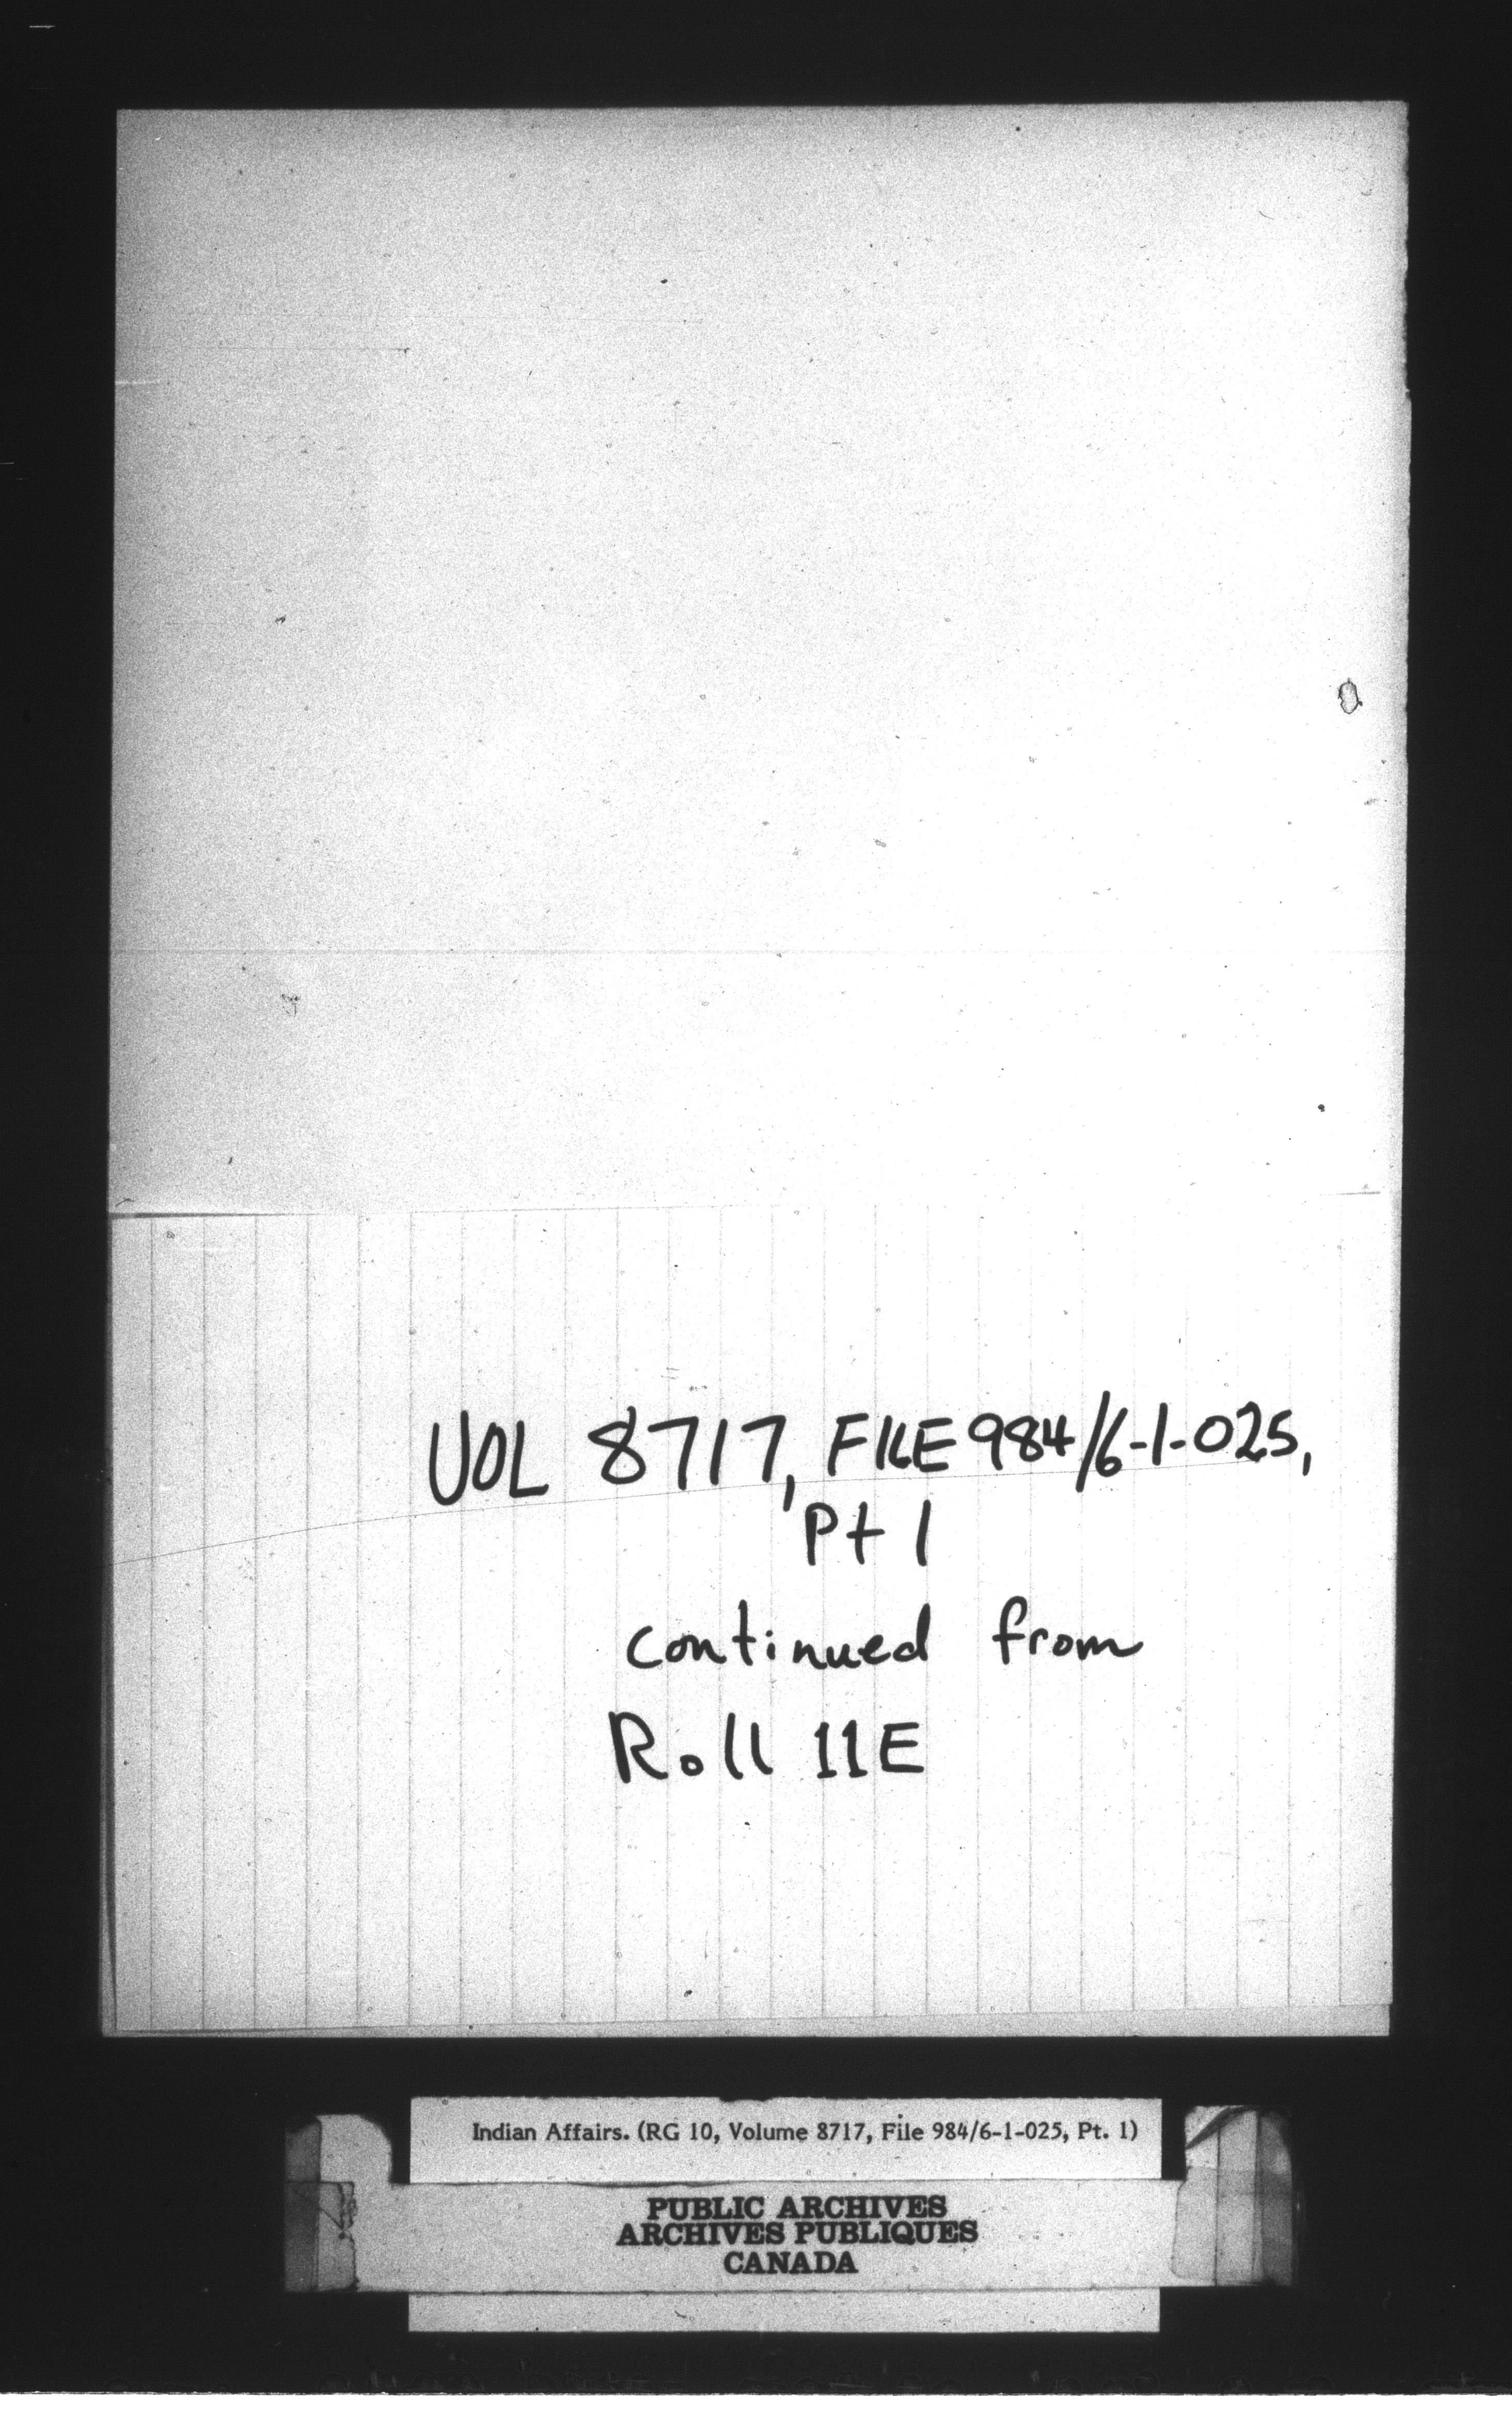 VOL 8717, FILE 984/6-1-025,
Pt 1
continued from
Roll 11E
Indian Affairs. (RG 10, Volume 8717, File 984/6-1-025, Pt. 1)
PUBLIC ARCHIVES
ARCHIVES PUBLIQUES
CANADA